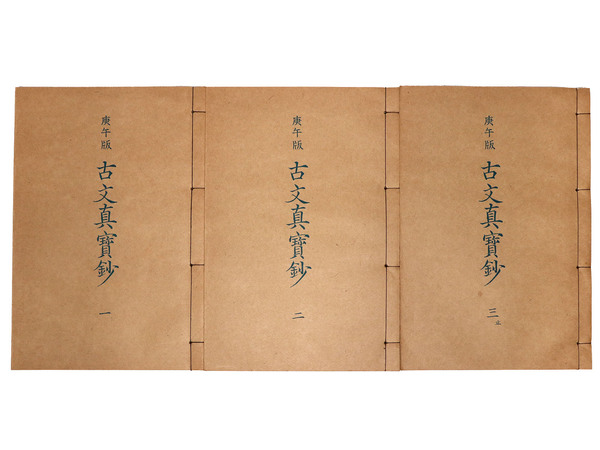 庚午版
古文真寶鈔
一
庚午版
古文真寶鈔
二
庚午版
古文真寶鈔
三